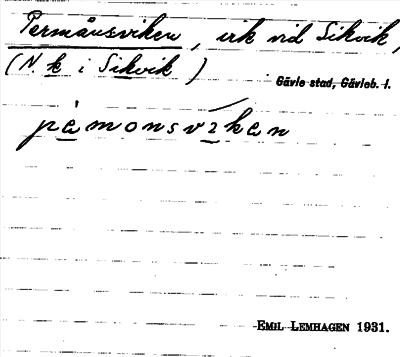 Permånsviken, vik vid Sikvik,
(N. k i Sikvik )
Gävle stad, Gävleb. l.
pèmonsvíken
EMIL LEMHAGEN 1931.